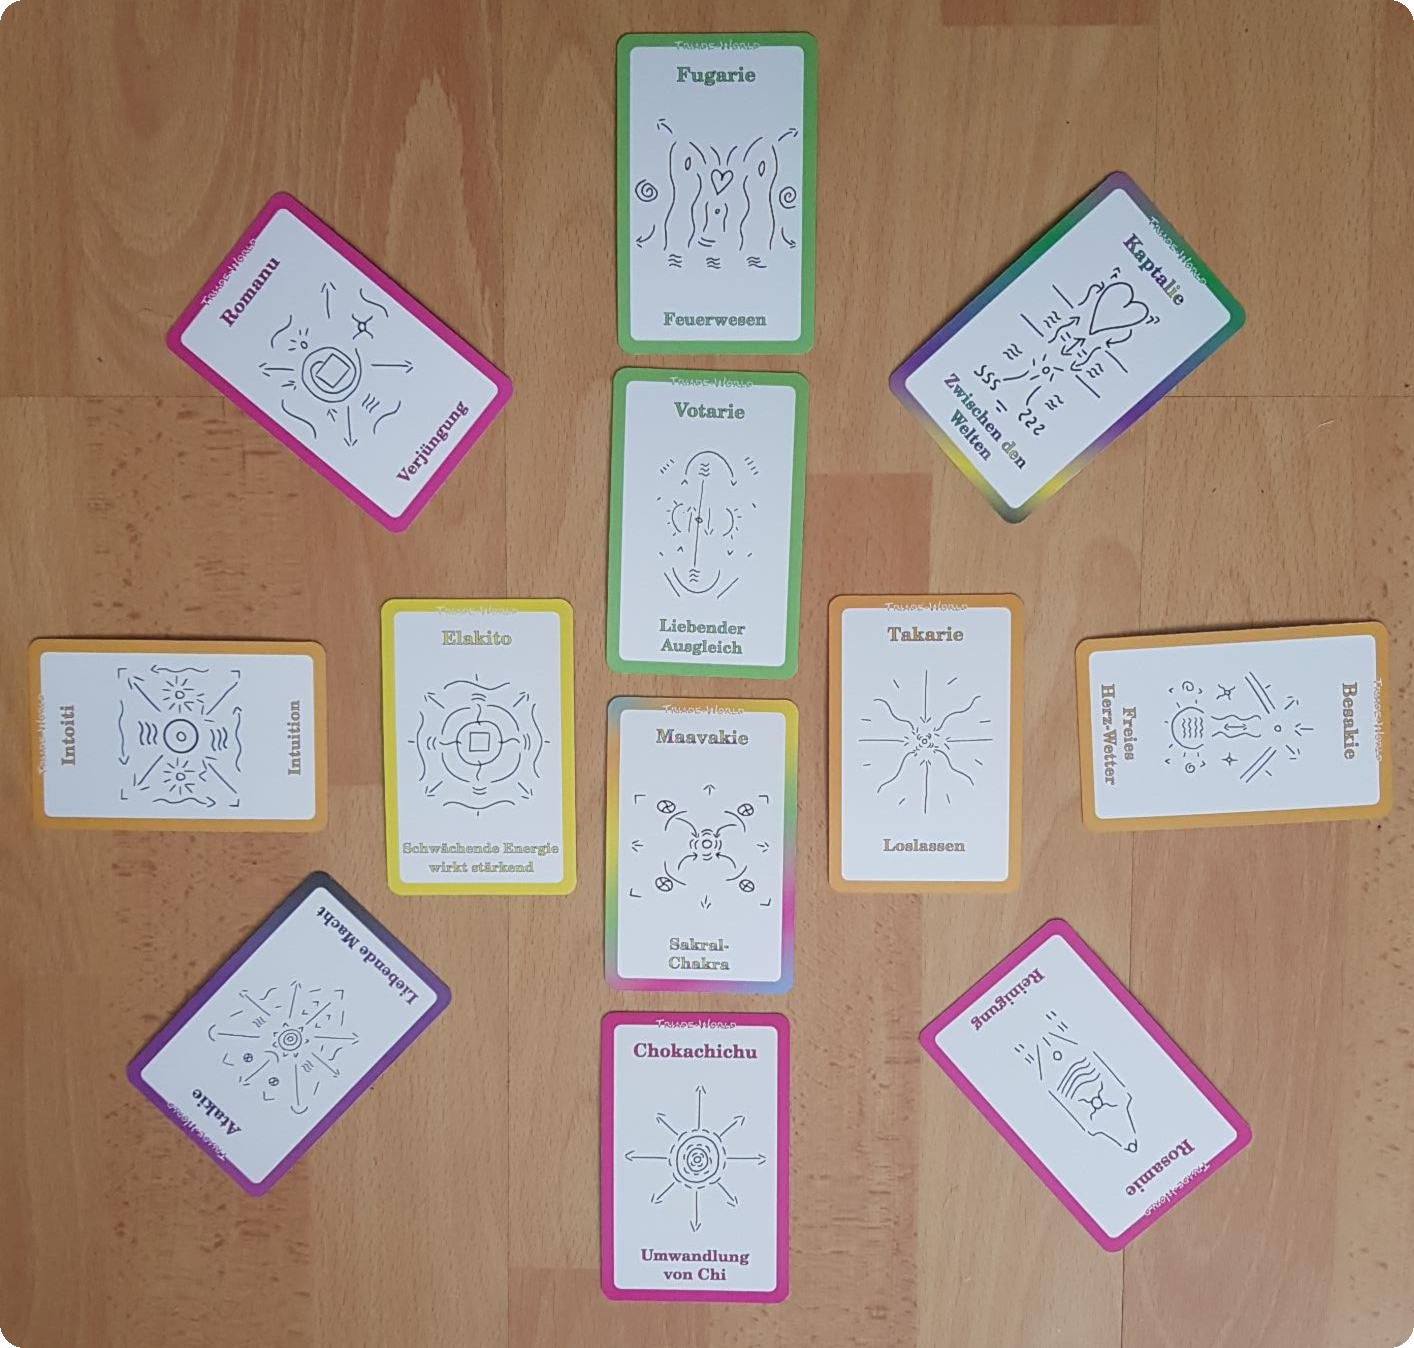 TRIADE-WORLD
Fugarie
Feuerwesen
TRIADE-WORLD
Romanu
Verjüngung
TRIADE-WORLD
Kaptalie
Zwischen den
Welten
TRIADE-WORLD
Votarie
Liebender
Ausgleich
TRIADE-WORLD
Intoiti
Intuition
TRIADE-WORLD
Elakito
Schwächende Energie
wirkt stärkend
TRIADE-WORLD
Maavakie
Sakral-
Chakra
TRIADE-WORLD
Takarie
Loslassen
TRIADE-WORLD
Besakie
Freies
Herz-Wetter
TRIADE-WORLD
Atakie
Liebende Macht
TRIADE-WORLD
Chokachichu
Umwandlung
von Chi
TRIADE-WORLD
Rosamie
Reinigung